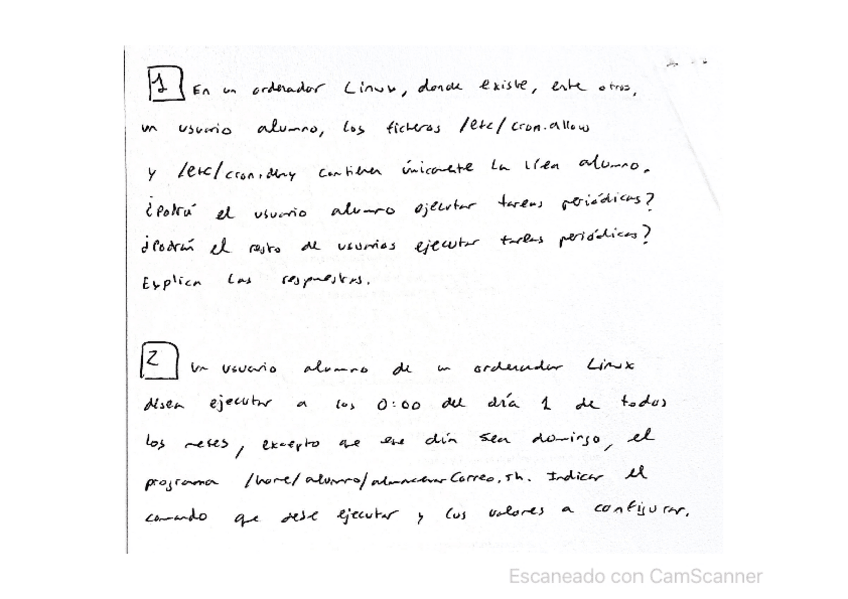 1 En un ordenador Linux, donde existe, entre otros,
un usuario alumno, los ficheros /etc/cron.allow
y /etc/cron.deny contienen únicamente la línea alumno.
¿Podrá el usuario alumno ejecutar tareas periódicas?
¿Podrán el resto de usuarios ejecutar tareas periódicas?
Explica las respuestas.
2 Un usuario alumno de un ordenador Linux
desea ejecutar a las 0:00 del día 1 de todos
los meses, excepto que ese día sea domingo, el
programa /home/alumno/almacenarCorreo.sh. Indicar el
comando que debe ejecutar y los valores a configurar.
Escaneado con CamScanner